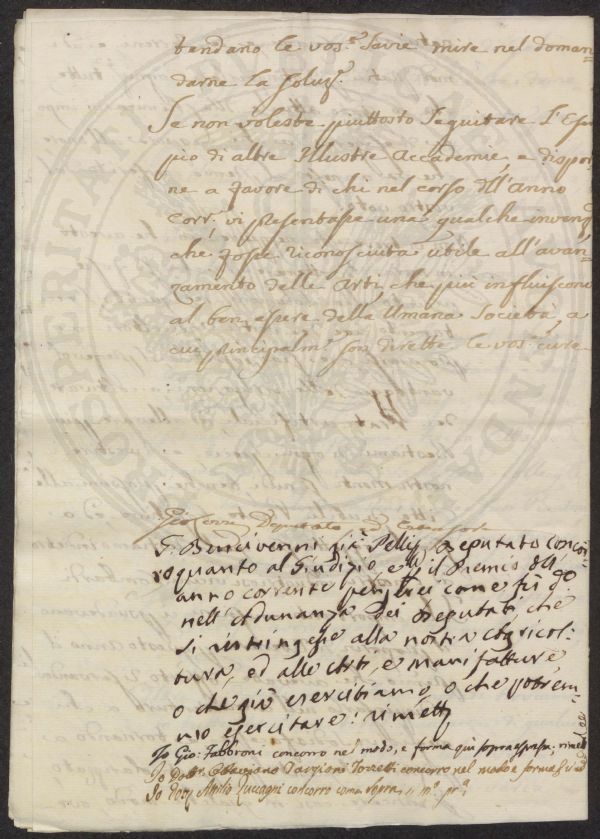 tendano le vos.e Savie mire nel doman=
darne la soluz.e
Se non voleste piuttosto Seguitare L'Esem
pio di altre Illustre Accademie, e dispor
ne a favore di chi nel corso dell'Anno
Corr.e vi presentasse una qualche invenz.e
che fosse riconosciuta utile all'avan=
zamento delle Arti, che più influiscono
al ben essere della Umana Società, a
cui principalm.e son dirette le vos.e cure
Deputato
G. Bencivenni già Pelli, Deputato concor
ro quanto al Giudizio, e il Premio dell'
anno corrente come fu d.o
nell'Adunanza dei Deputati che
si ristringesse alla nostra Agricol=
tura, ed alle Arti, e manifatture
o che già esercitiamo, o che potrem=
mo esercitare:
Io Gio: Fabbroni concorro nel modo, e forma qui sopra espressa;
Io Dott.r Ottaviano Targioni Tozzetti concorro nel modo e forma
Io Dott. Attilio Zuccagni concorro come sopra, m.o pr.a